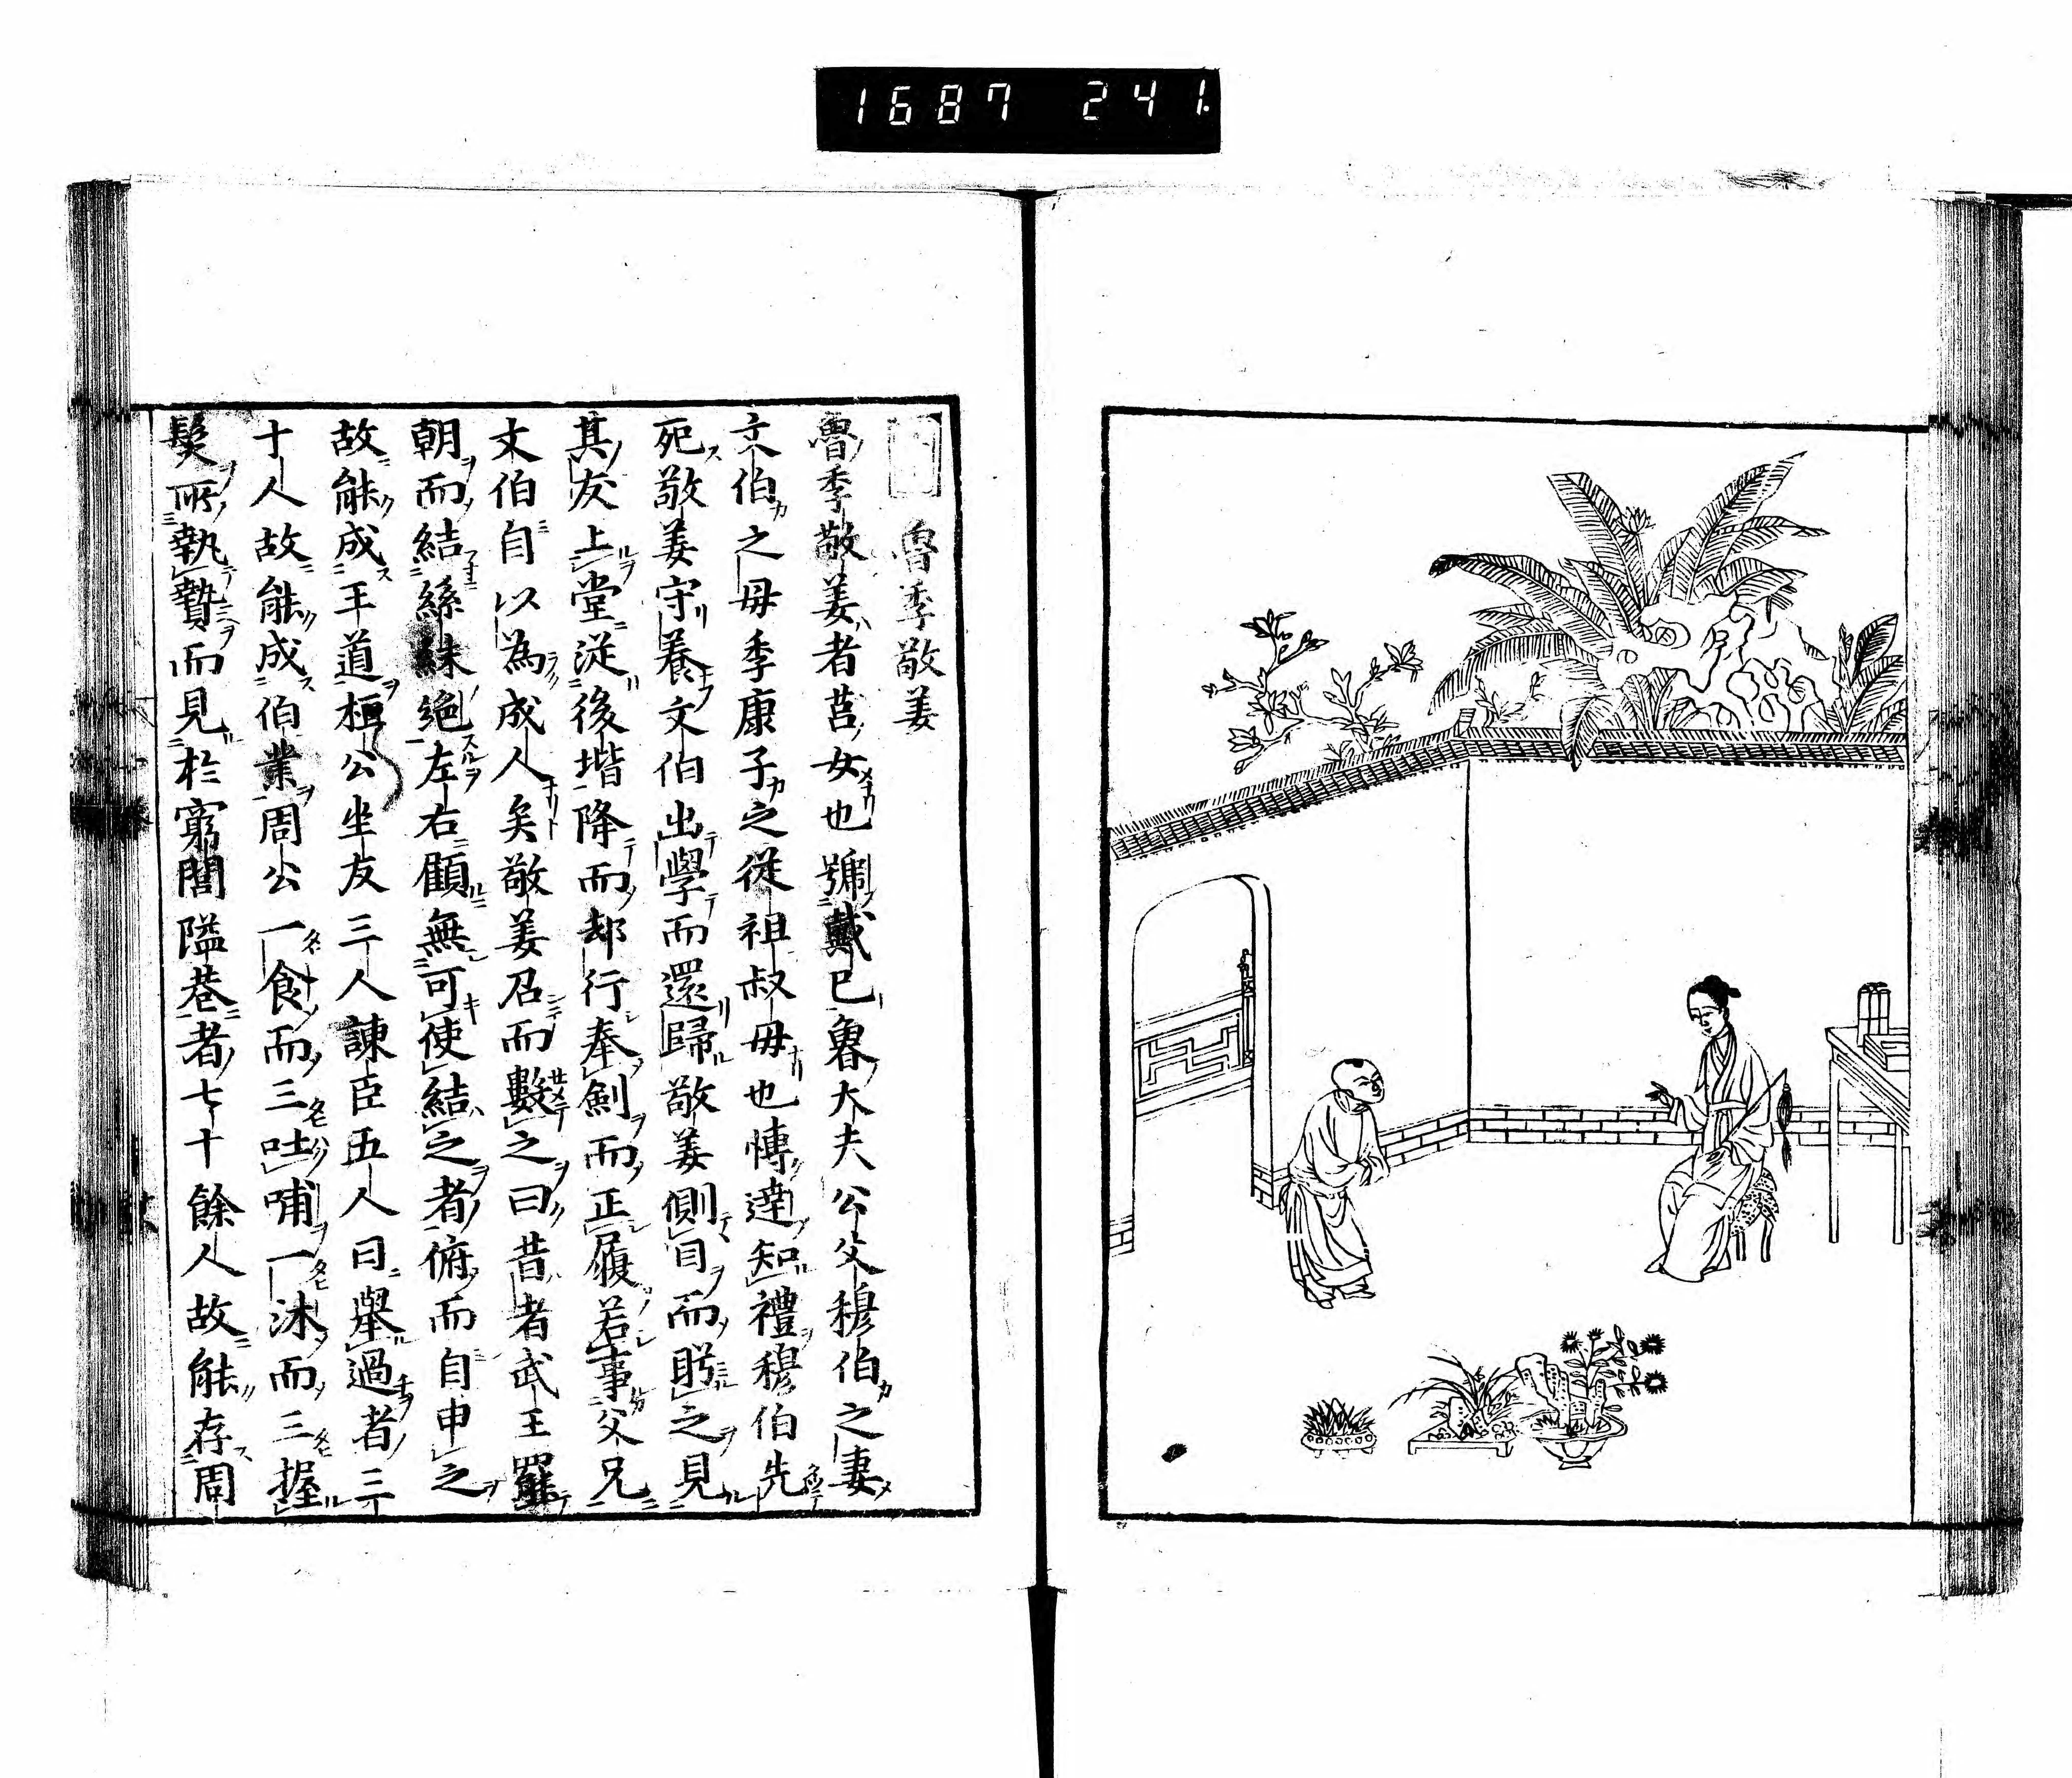 1687 241.
魯季敬姜
魯季敬姜者莒女也號戴己魯大夫公父穆伯之妻
文伯之母季康子之從祖叔母也慱達知禮穆伯先
死敬姜守養文伯出學而還歸敬姜側目而盻之見
其友上堂從後堦降而却行奉劍而正履若事父兄
文伯自以為成人矣敬姜召而數之曰昔者武王罷
朝而結絲絉絕左右顧無可使結之者俯而自申之
故能成王道桓公坐友三人諫臣五人日舉過者三
十人故能成伯業周公一食而三吐哺一沐而三握
髮所執贄而見於窮閭隘巷者七十餘人故能存周